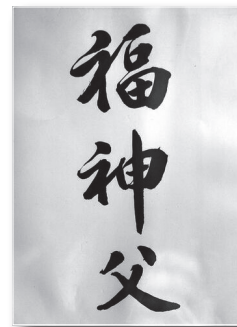 福神父